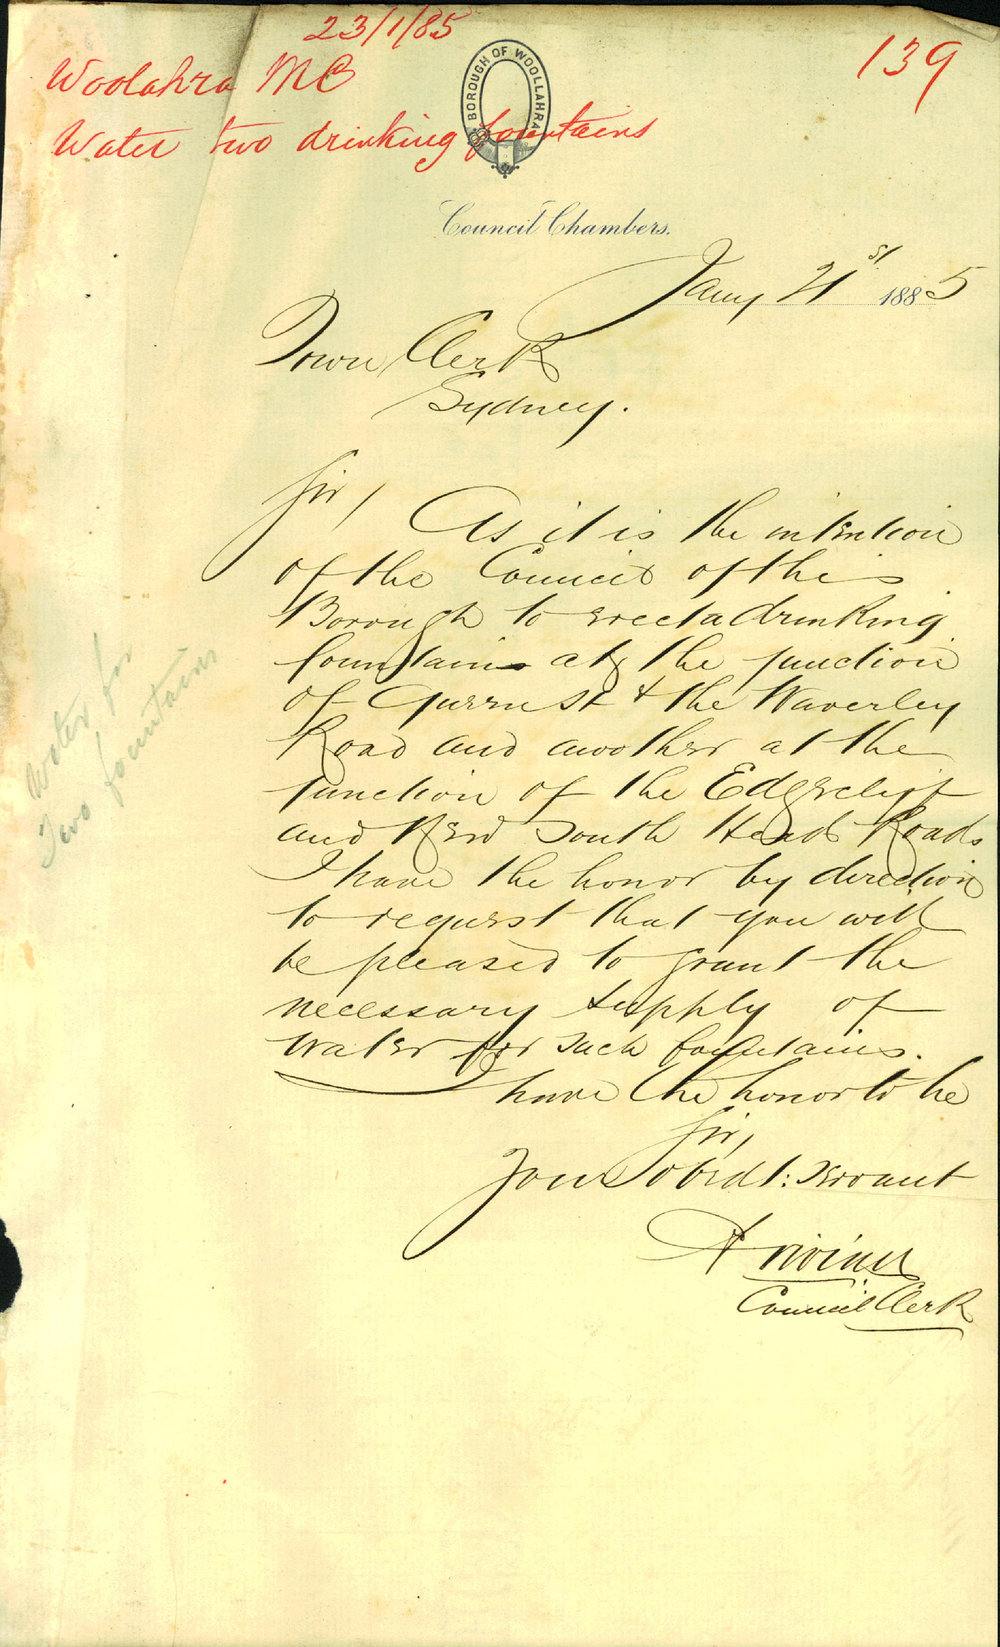 23/1/85
139
Woolahra MC
Water two drinking fountains
BOROUGH OF WOOLLAHRA
Council Chambers.
Jany 21st 1885
Town Clerk
Sydney.
Sir,
As it is the intention
of the Council of this
Borough to erect a drinking
fountain at the junction
of Queen St & the Waverley
Road and another at the
junction of the Edgecliff
and New South Head Roads
I have the honor by direction
to request that you will
be pleased to grant the
necessary supply of
water for such fountains.
I have the honor to be
Sir,
Your obedt: servant
Council Clerk
Water for
Two fountains